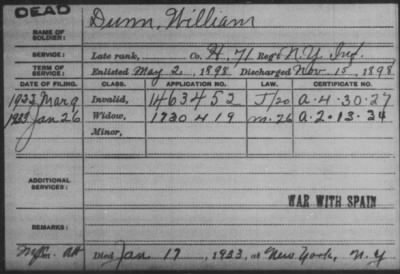 DEAD
NAME OF SOLDIER: Dunn, William
SERVICE: Late rank, Co. H, 71 Reg't N.Y. Inf.
TERM OF SERVICE: Enlisted May 2, 1898, Discharged Nov. 15, 1898
DATE OF FILING. CLASS. APPLICATION NO. LAW. CERTIFICATE NO.
1922 Mar 9 Invalid, 1463452 J/20 A-4-30-27
1933 Jan 26 Widow, 1730419 M.26 A-2-13-34
Minor,
ADDITIONAL SERVICES:
WAR WITH SPAIN
REMARKS:
Att Died Jan. 17, 1933, at New York, N.Y